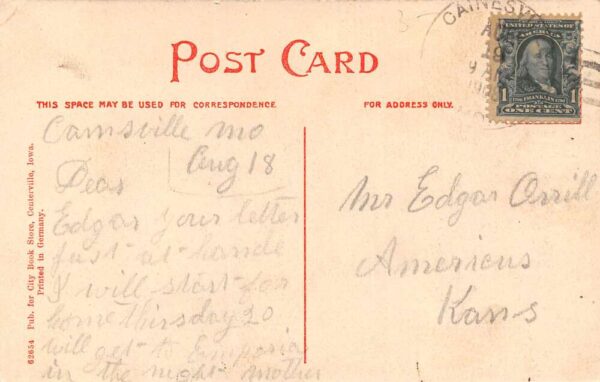 CAINESV
POST CARD
UNITED STATES OF
AMERICA
1 FRANKLIN 1
POSTAGE
ONE CENT
THIS SPACE MAY BE USED FOR CORRESPONDENCE.
FOR ADDRESS ONLY.
Cainsville Mo
Aug 18
Dear
Edgar your letter
just at hande
I will start for
home thirsday 20
will get to Emporia
in the night Mother
Mr Edgar Orrill
Americus
Kans
62654 Pub. for City Book Store, Centerville, Iowa.
Printed in Germany.